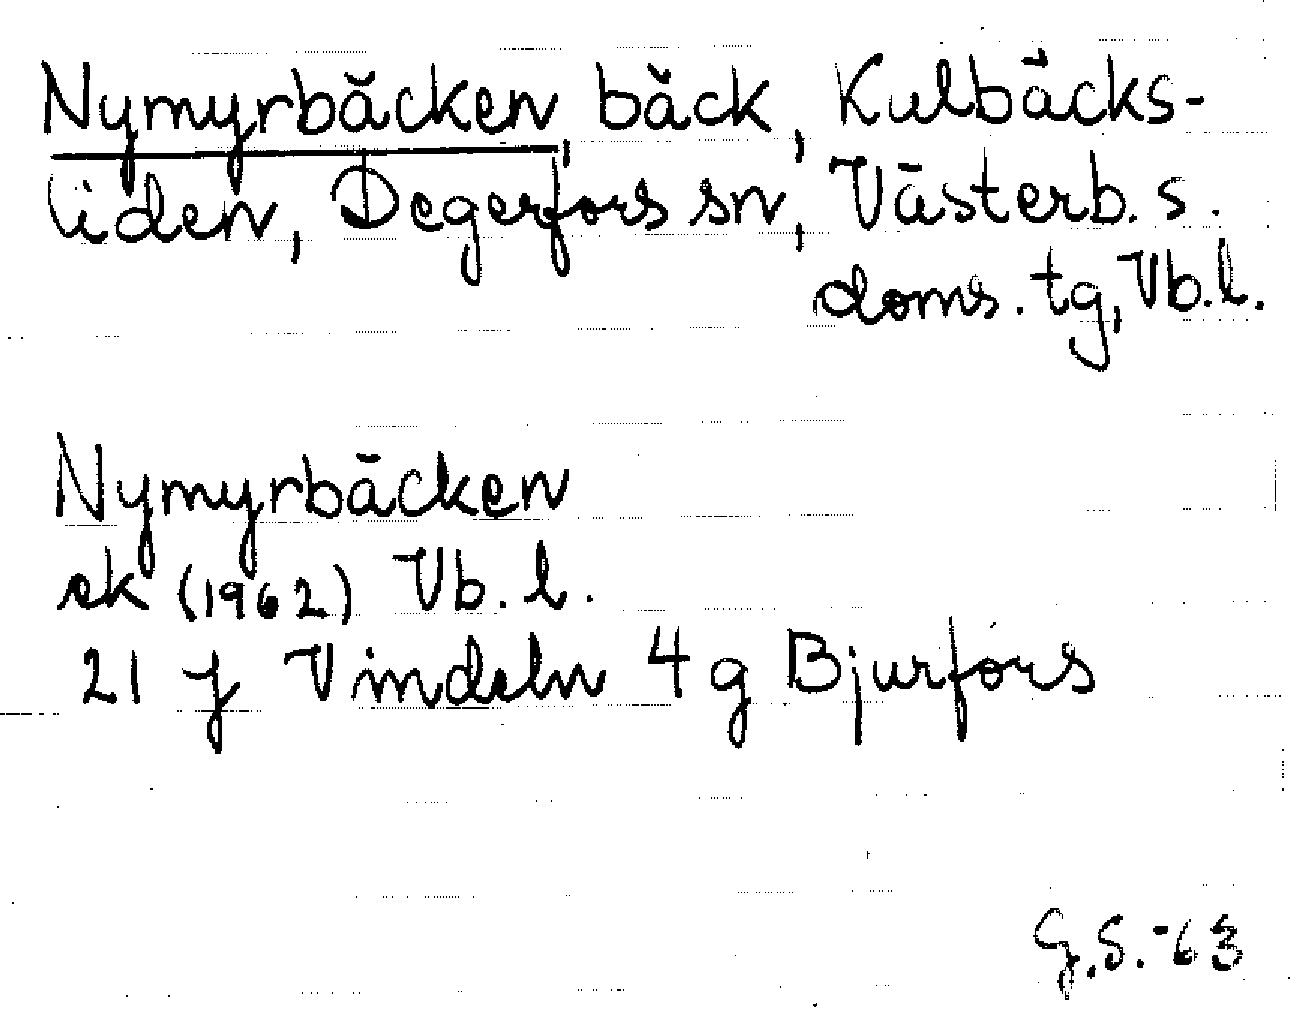 Nymyrbäcken, bäck, Kulbäcks-
liden, Degerfors sn, Västerb. s.
doms. tg, Vb. l.
Nymyrbäcken
ek (1962) Vb. l.
21 J Vindeln 4 g Bjurfors
G.S.-63